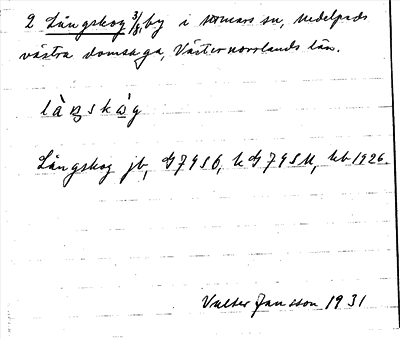 2 Långskog 3/8, by i Stömars sn, Medelpads
västra domsaga, Västernorrlands län.
làŋskò̱g
Långskog jb, GFYSÖ, kGFYSM, kb 1926.
Valter Jansson 1931